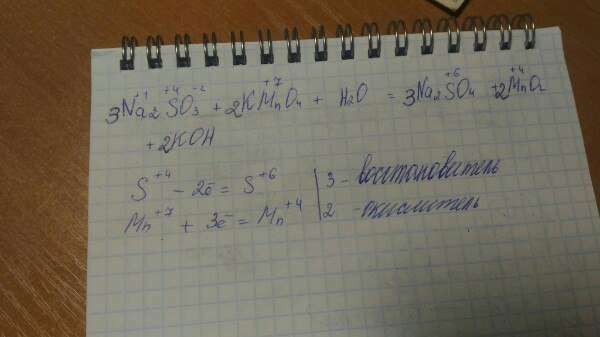 3Na₂⁺¹S⁺⁴O₃⁻² + 2KMn⁺⁷O₄ + H₂O = 3Na₂S⁺⁶O₄ + 2Mn⁺⁴O₂
+ 2KOH
S⁺⁴ - 2ē = S⁺⁶ | 3 - восстановитель
Mn⁺⁷ + 3ē = Mn⁺⁴ | 2 - окислитель